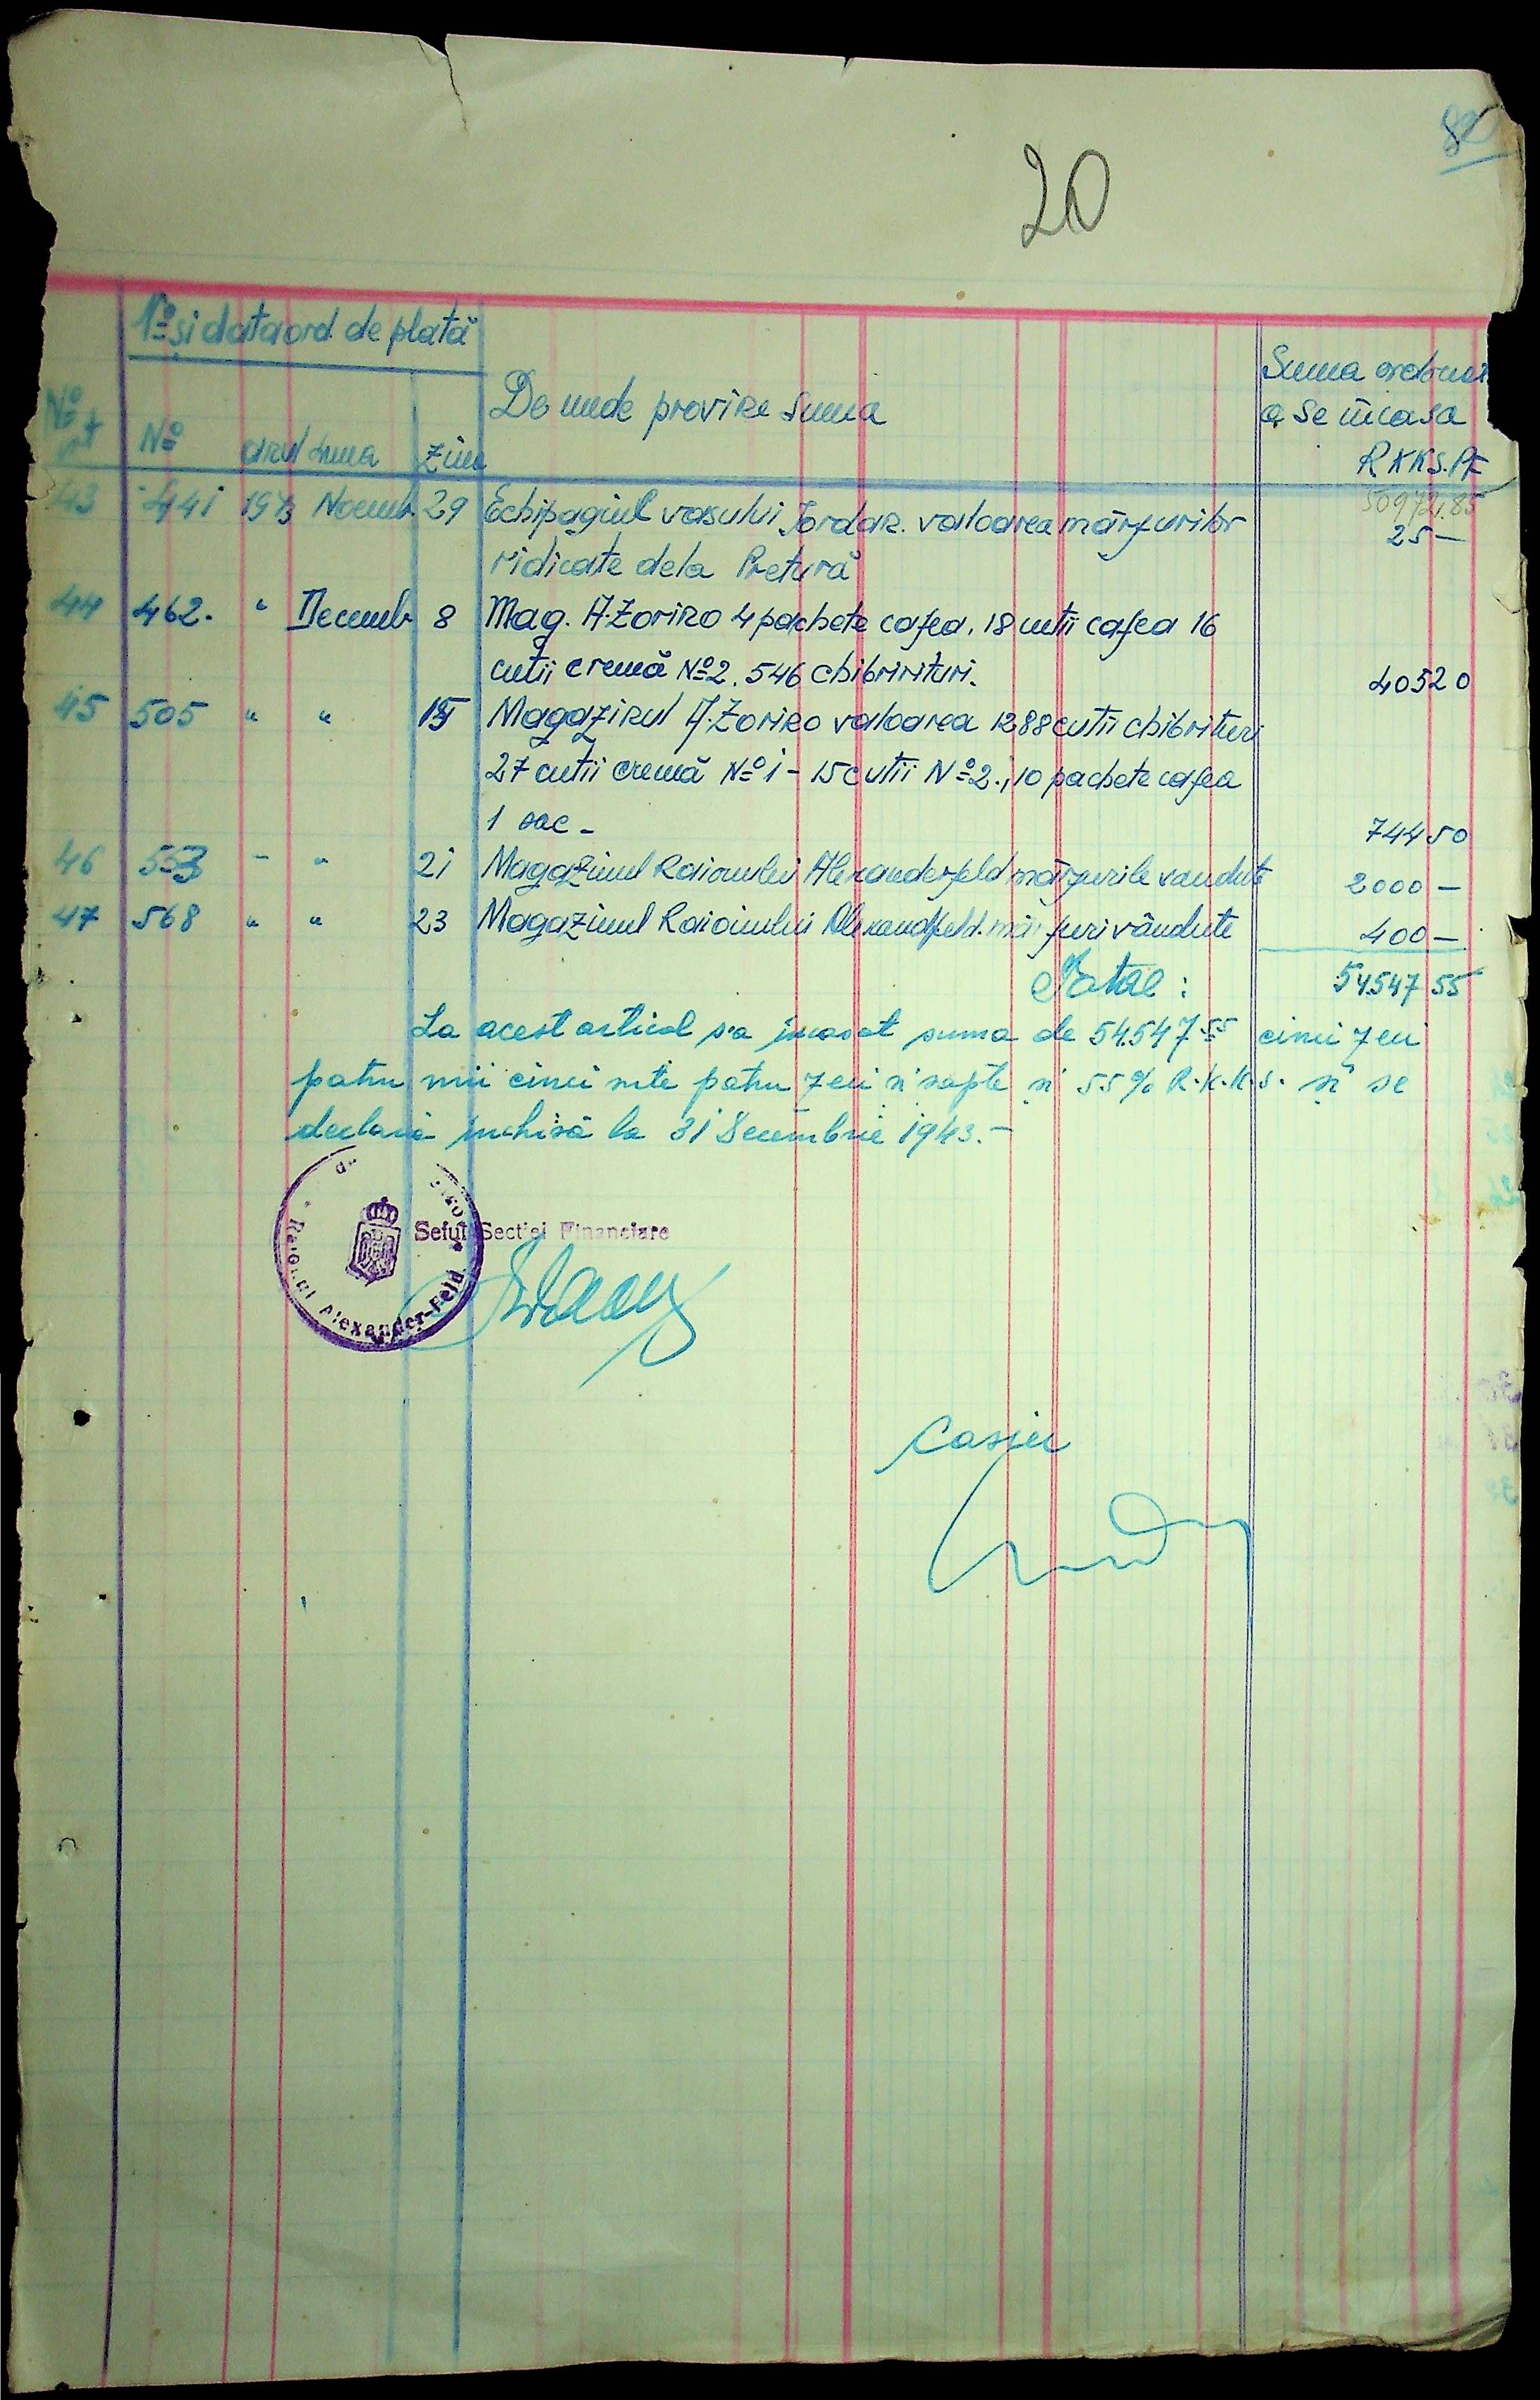 82
20
No și data ord. de plată
De unde provine suma
Suma ordonat
a se incasa
No
No anul Luna Ziua
R.K.K.S. Pf
50972,85
43 441 1943 Noemb. 29 Echipagiul vasului Iordan. valoarea mărfurilor 25 —
ridicate dela Pretură
44 462. " Decemb 8 Mag. A. Zorino 4 pachete cafea, 18 cutii cafea 16
cutii cremă No 2. 546 chibrituri. 405 20
45 505 " " 15 Magazinul A. Zorino valoarea 1288 cutii chibrituri
27 cutii cremă No 1 - 15 cutii No 2., 10 pachete cafea
1 sac - 744 50
46 553 - " 21 Magazinul Raionului Alexanderfeld mărfurile vandute 2000 —
47 568 " " 23 Magazinul Raionului Alexandfeld. mărfuri vândute 400 —
Total : 54547 55
La acest articol s'a incasat suma de 54.547 55 cinci zeci
patru mii cinci sute patru zeci si sapte si 55 % R.K.K.S. si se
declară inchisă la 31 Decembrie 1943. —
Seful Sectiei Financiare
Raionul Alexander-Feld
Casier